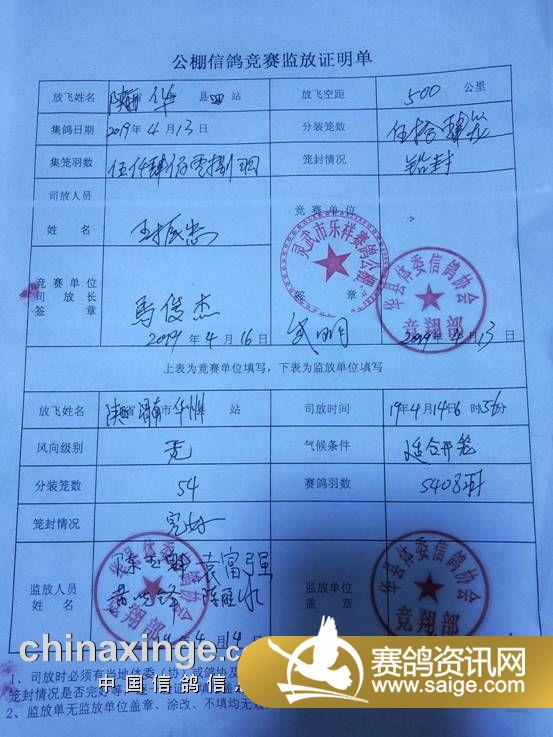 公棚信鸽竞赛监放证明单
放飞姓名 陕西省 华县 站 放飞空距 500 公里
集鸽日期 2019年4月13日 分装笼数 伍拾肆笼
集笼羽数 伍仟肆佰零捌羽 笼封情况 铅封
司放人员
姓 名
竞赛单位
签 章
竞赛单位
司放长
签 章
马俊杰
2019年4月16日
2019年4月13日
灵武市乐祥赛鸽公棚
华县体委信鸽协会
竞翔部
上表为竞赛单位填写，下表为监放单位填写
放飞姓名 陕西省渭南市华州 站 司放时间 19年4月14日6时56分
风向级别 无 气候条件 适合开笼
分装笼数 54 赛鸽羽数 5408羽
笼封情况 完好
监放人员
姓 名
袁富强
监放单位
盖 章
华县体委信鸽协会
竞翔部
年4月14日
1、司放时必须有当地体委（协）或鸽协及
笼封情况是否完好等
2、监放单无监放单位盖章、涂改、不填均无效
chinaxinge.com
中国信鸽信息
赛鸽资讯网
www.saige.com